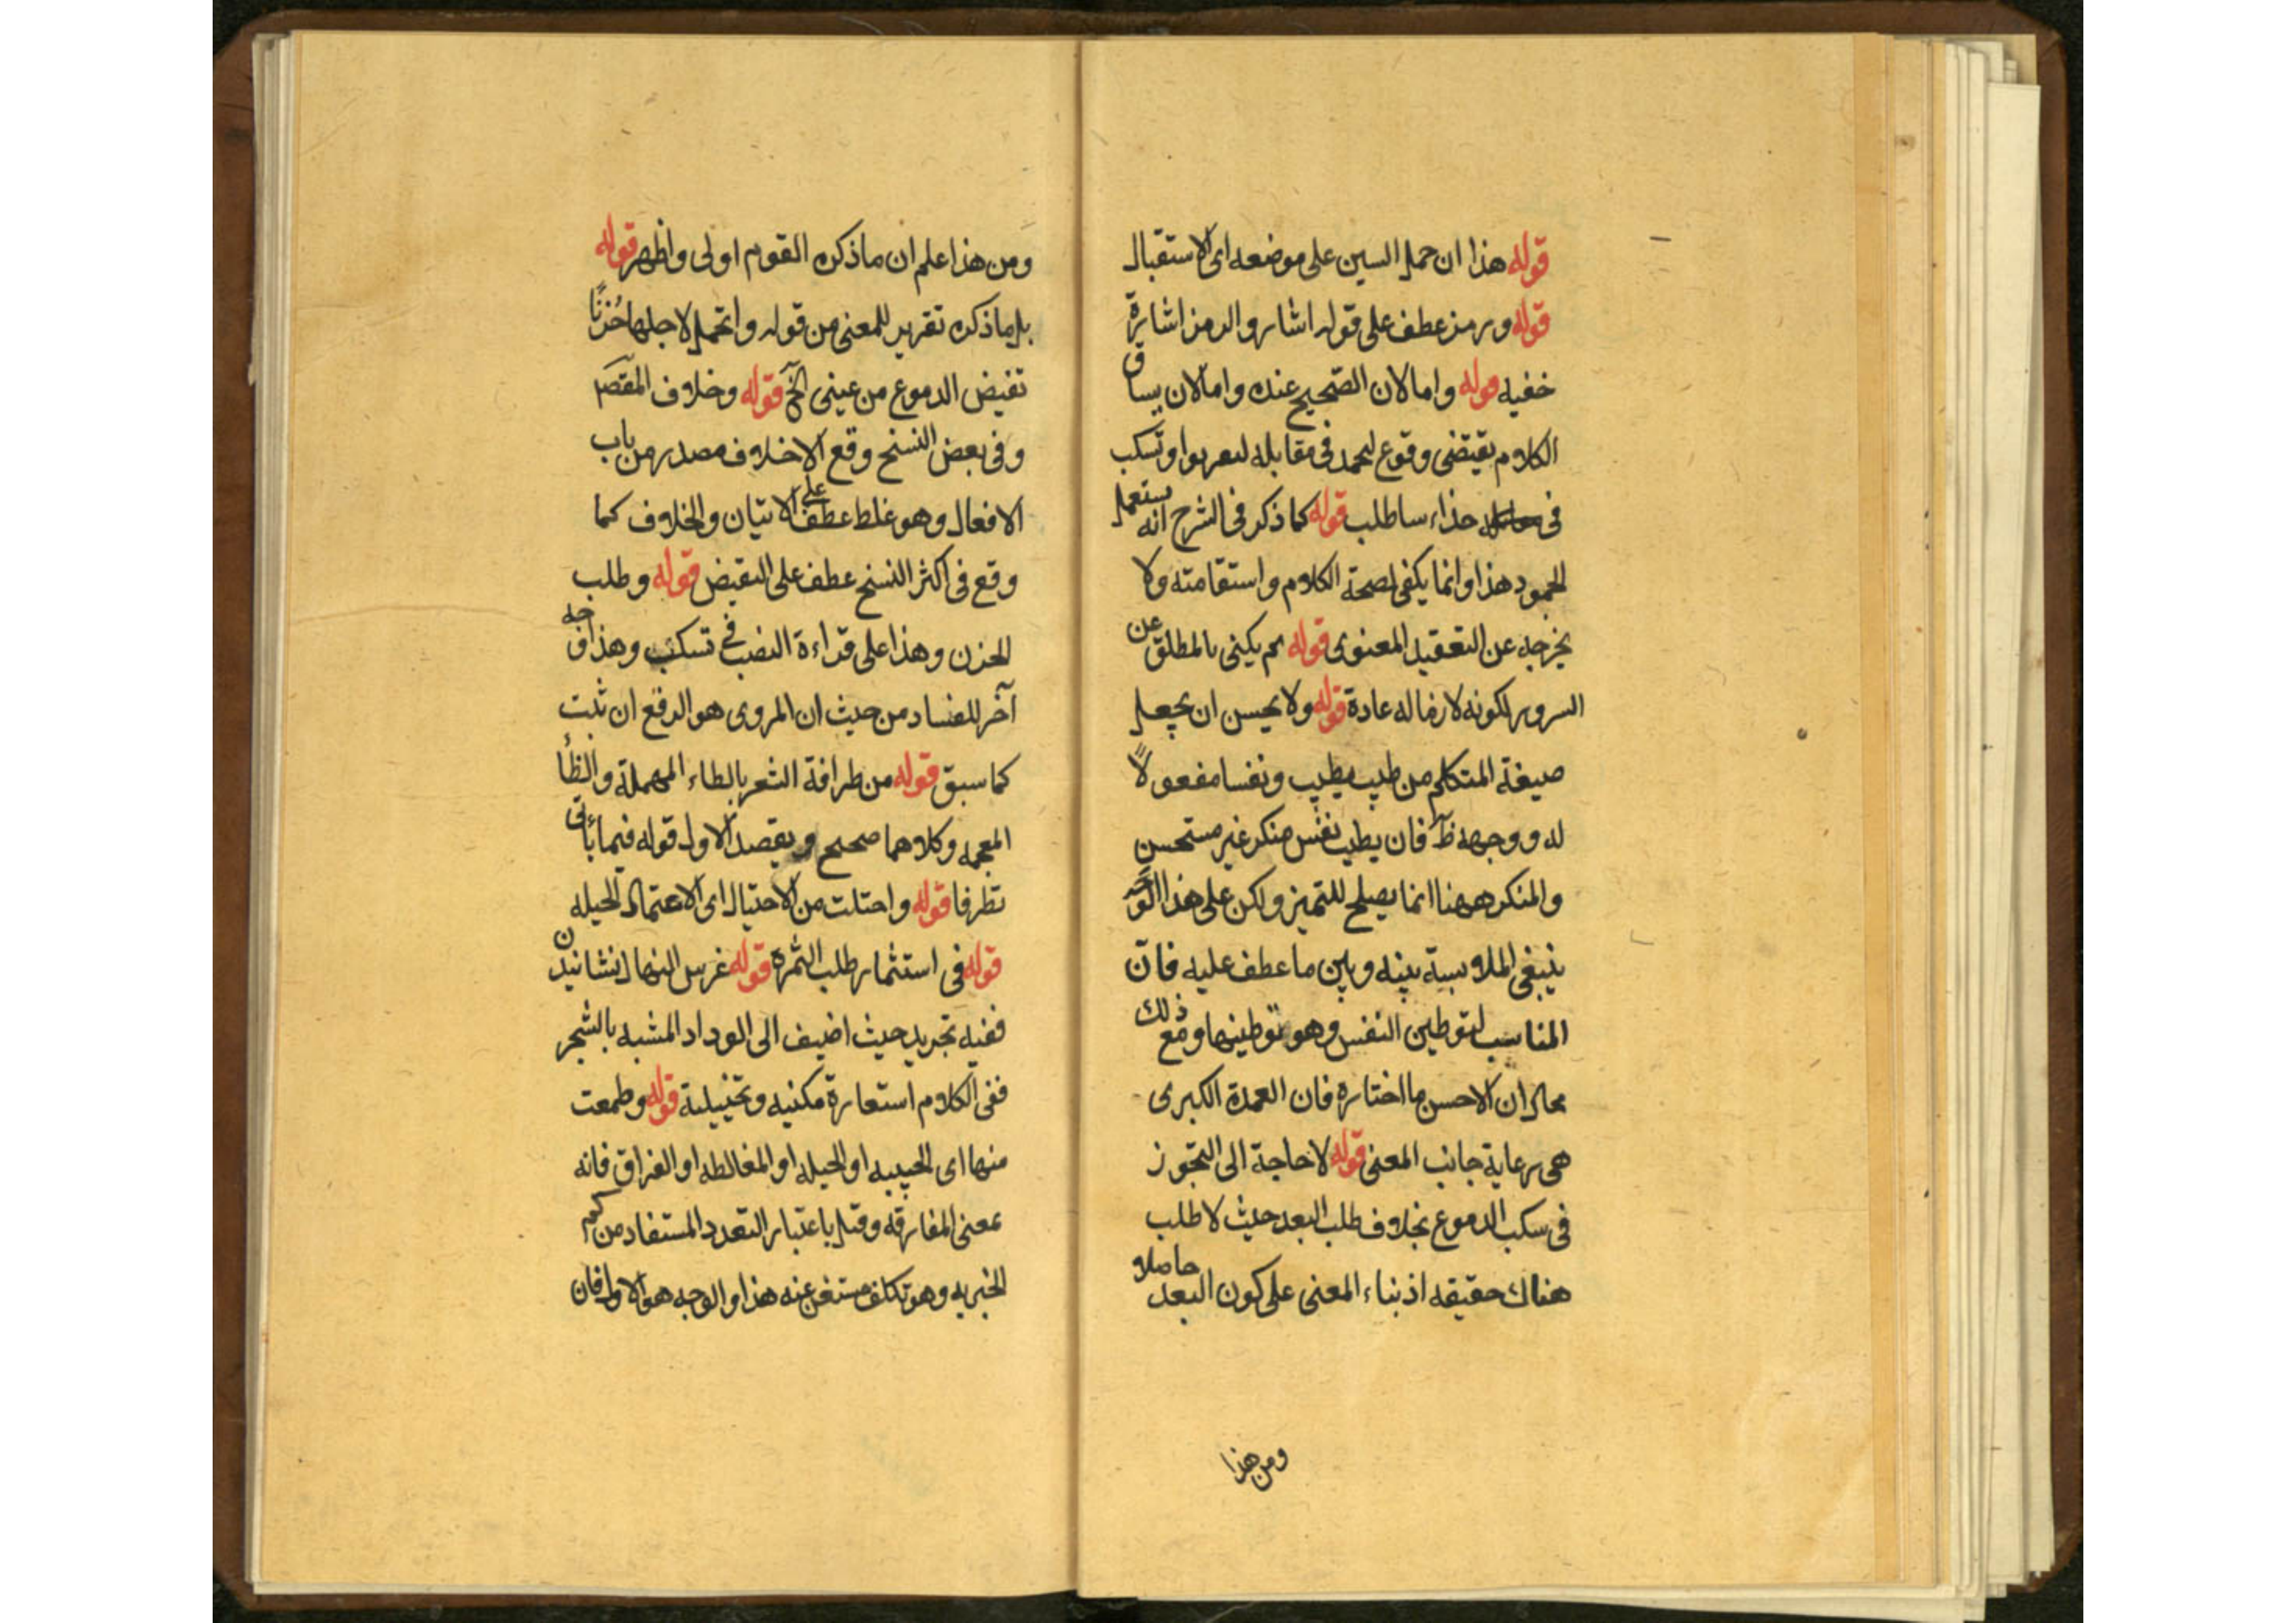 قوله هذا ان حمل السين على موضعه اى الاستقبال
قوله ورمز عطف على قوله اشار والرمز اشارة
خفيه قوله واما لان الصحيح عنده واما لان يساق
الكلام يقتضى وقوع لجمد فى مقابله لتعربوا وتسكب
فى حذاء ساطلب قوله كما ذكر فى الشرح انه يستعمل
الجمود هذا وانما يكفى لصحة الكلام واستقامته ولا
يخرجه عن التعقيد المعنوى قوله ثم يكنى بالمطلق عن
السرور لكونه لازماله عادة قوله ولا يحسن ان يجعل
صيغة المتكلم من طيب يطيب ونفسا مفعولاً
له ووجهه ظ فان يطيب نفس منكر غير مستحسن
والمنكر ههنا انما يصلح للتميز ولكن على هذا
ينبغى الملابسة بينه وبين ما عطف عليه فانّ
المناسب لتوطين النفس وهو توطينها ومع ذلك
محال ان الاحسن ما اختاره فان العمدة الكبرى
هى رعاية جانب المعنى قوله لا حاجة الى التجوز
فى سكب الدموع بخلاف طلب البعد حيث لا طلب
هناك حقيقه اذ بناء المعنى على كون البعد حاصلا
ومن هذا
ومن هذا علم ان ما ذكره القوم اولى واظهر قوله
بل ما ذكره تقرير للمعنى من قوله واتحمل لاجلها حُزنًا
تفيض الدموع من عينى الخ قوله وخلاف المقصر
وفى بعض النسخ وقع الاخلاف مصدر من باب
الافعال وهو غلط عطف على الاتيان والخلاف كما
وقع فى اكثر النسخ عطف على النقيض قوله وطلب
الحزن وهذا على قراءة النصب فى تسكب وهذا وجه
آخر للفساد من حيث ان المروى هو الرفع ان ثبت
كما سبق قوله من طرافة الشعر بالطاء المهملة والظأ
المعجمه وكلاهما صحيح ويقصد الاول قوله فيما يأتى
تطرفا قوله واحتلت من الاحتيال اى الاعتمال الحيله
قوله فى استثمار طلب الثمرة قوله غرس النهال نشانيدن
ففيه تجريد حيث اضيف الى الوداد المشبه بالشجر
ففى الكلام استعارة مكنيه وتخييلية قوله وطمعت
منها اى الحبيبه او الحيله او المغالطه او الفراق فانه
بمعنى المفارقه وقيل باعتبار التعدد المستفاد من كم
الخبريه وهو تكلف مستغن عنه هذا والوجه هو الاول فان